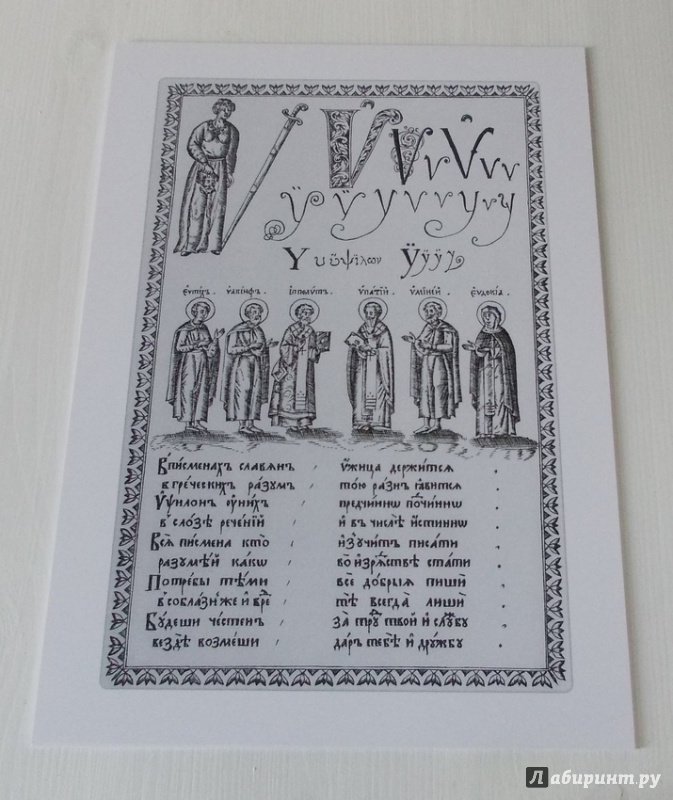 Ѵ Ѵ ѵ Ѵ ѵ ѵ
Ѵ̈ ѵ̈ у ѵ ѵ ц ѵ ѱ
Υ υ ϋψίλων Ϋ ϋ ϋ ϋ
ѵ҆акінѳ. іпполѵт. ѵ҆патїй. еѵдокіа.
Впи́сменахъ славѧнъ ѵ҆́жица держи́тсѧ
в гре́ческихъ ра́зумъ то́ю ра́знъ ꙗ҆ви́тсѧ
Ѵ҆ѱило́нъ ѻу҆ни́хъ предчи́ннѡ почи́ннѡ
в сло́зѣ рече́нїй и҆ въ числѣ̀ и҆́стиннѡ
Всѧ̑ пи́смена кто̀ и҆зꙋчи́тъ писа́ти
разꙋмѣ́й ка́кѡ во и҆зрѧ́дствѣ ста́ти
Потре́бы тѣ́ми всѐ до́брыѧ пишѝ
в собла́зни же и҆ вре́ тѣ̀ всегда̀ лишѝ
Бꙋ́деши че́стенъ за̀ трꙋ́ твой и҆ слꙋ́жбꙋ
вездѣ̀ во́змеши да́ръ тебѣ̀ и҆ дрꙋ́жбꙋ
Лабиринт.ру